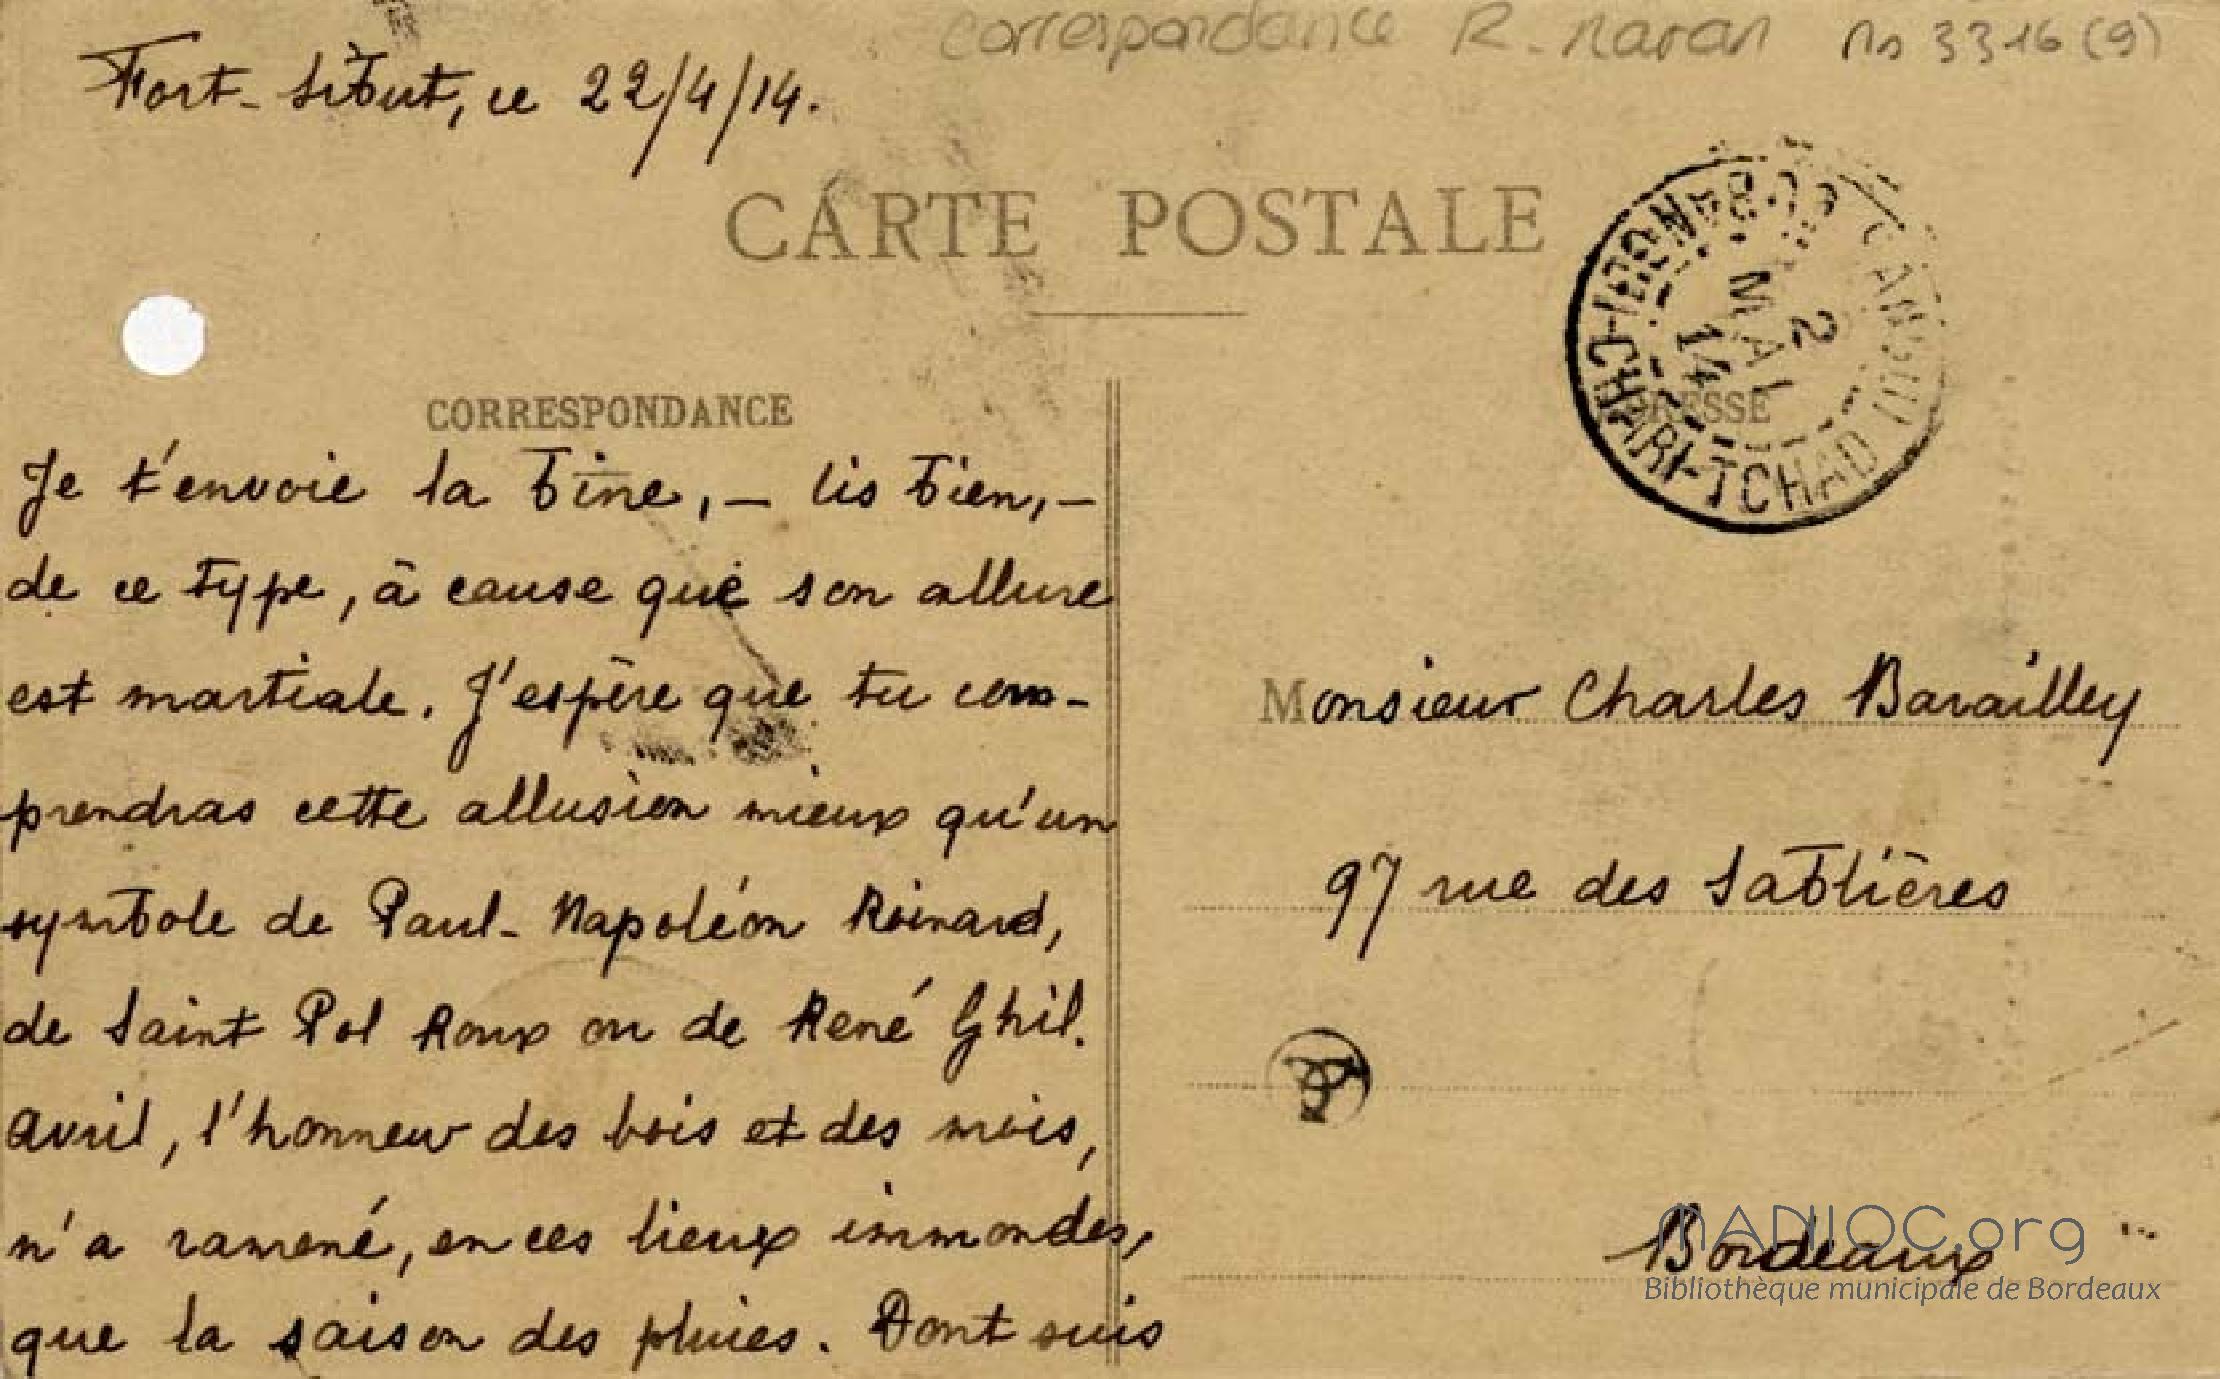 correspondance R. Maran Ms 3316 (9)
Fort-Sibut, ce 22/4/14.
CARTE POSTALE
CORRESPONDANCE
Je t'envoie la bine, – lis bien, –
de ce type, à cause que son allure
est martiale. J'espère que tu com-
prendras cette allusion mieux qu'un
symbole de Paul-Napoléon Roinard,
de Saint Pol Roux ou de René Ghil.
Avril, l'honneur des bois et des mois,
n'a ramené, en ces lieux immondes,
que la saison des pluies. Dont suis
OUBANGUI-CHARI-TCHAD
2
MAI
14
RESSE
Monsieur Charles Barailley
97 rue des Sablières
Bordeaux
MANIOC.org
Bibliothèque municipale de Bordeaux